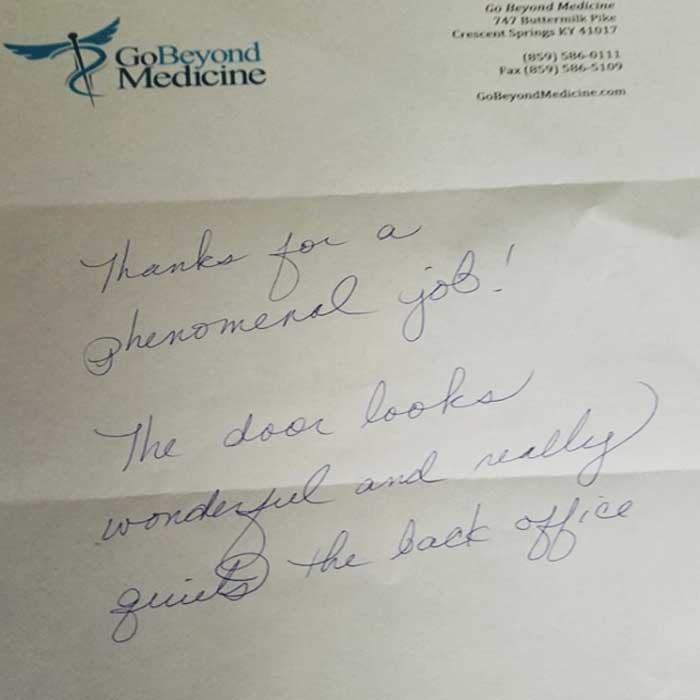 GoBeyond
Medicine
Go Beyond Medicine
747 Buttermilk Pike
Crescent Springs KY 41017
(859) 586-0111
Fax (859) 586-5109
GoBeyondMedicine.com
Thanks for a
phenomenal job!
The door looks
wonderful and really
quiets the back office